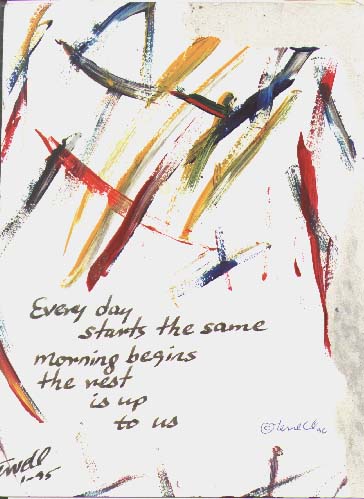 Every day
starts the same
morning begins
the rest
is up
to us
©
1-95